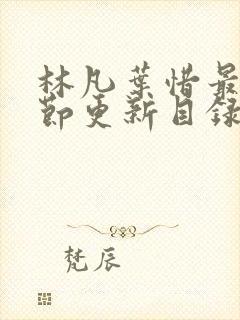 林凡葉惜最
節更新目錄
梵辰